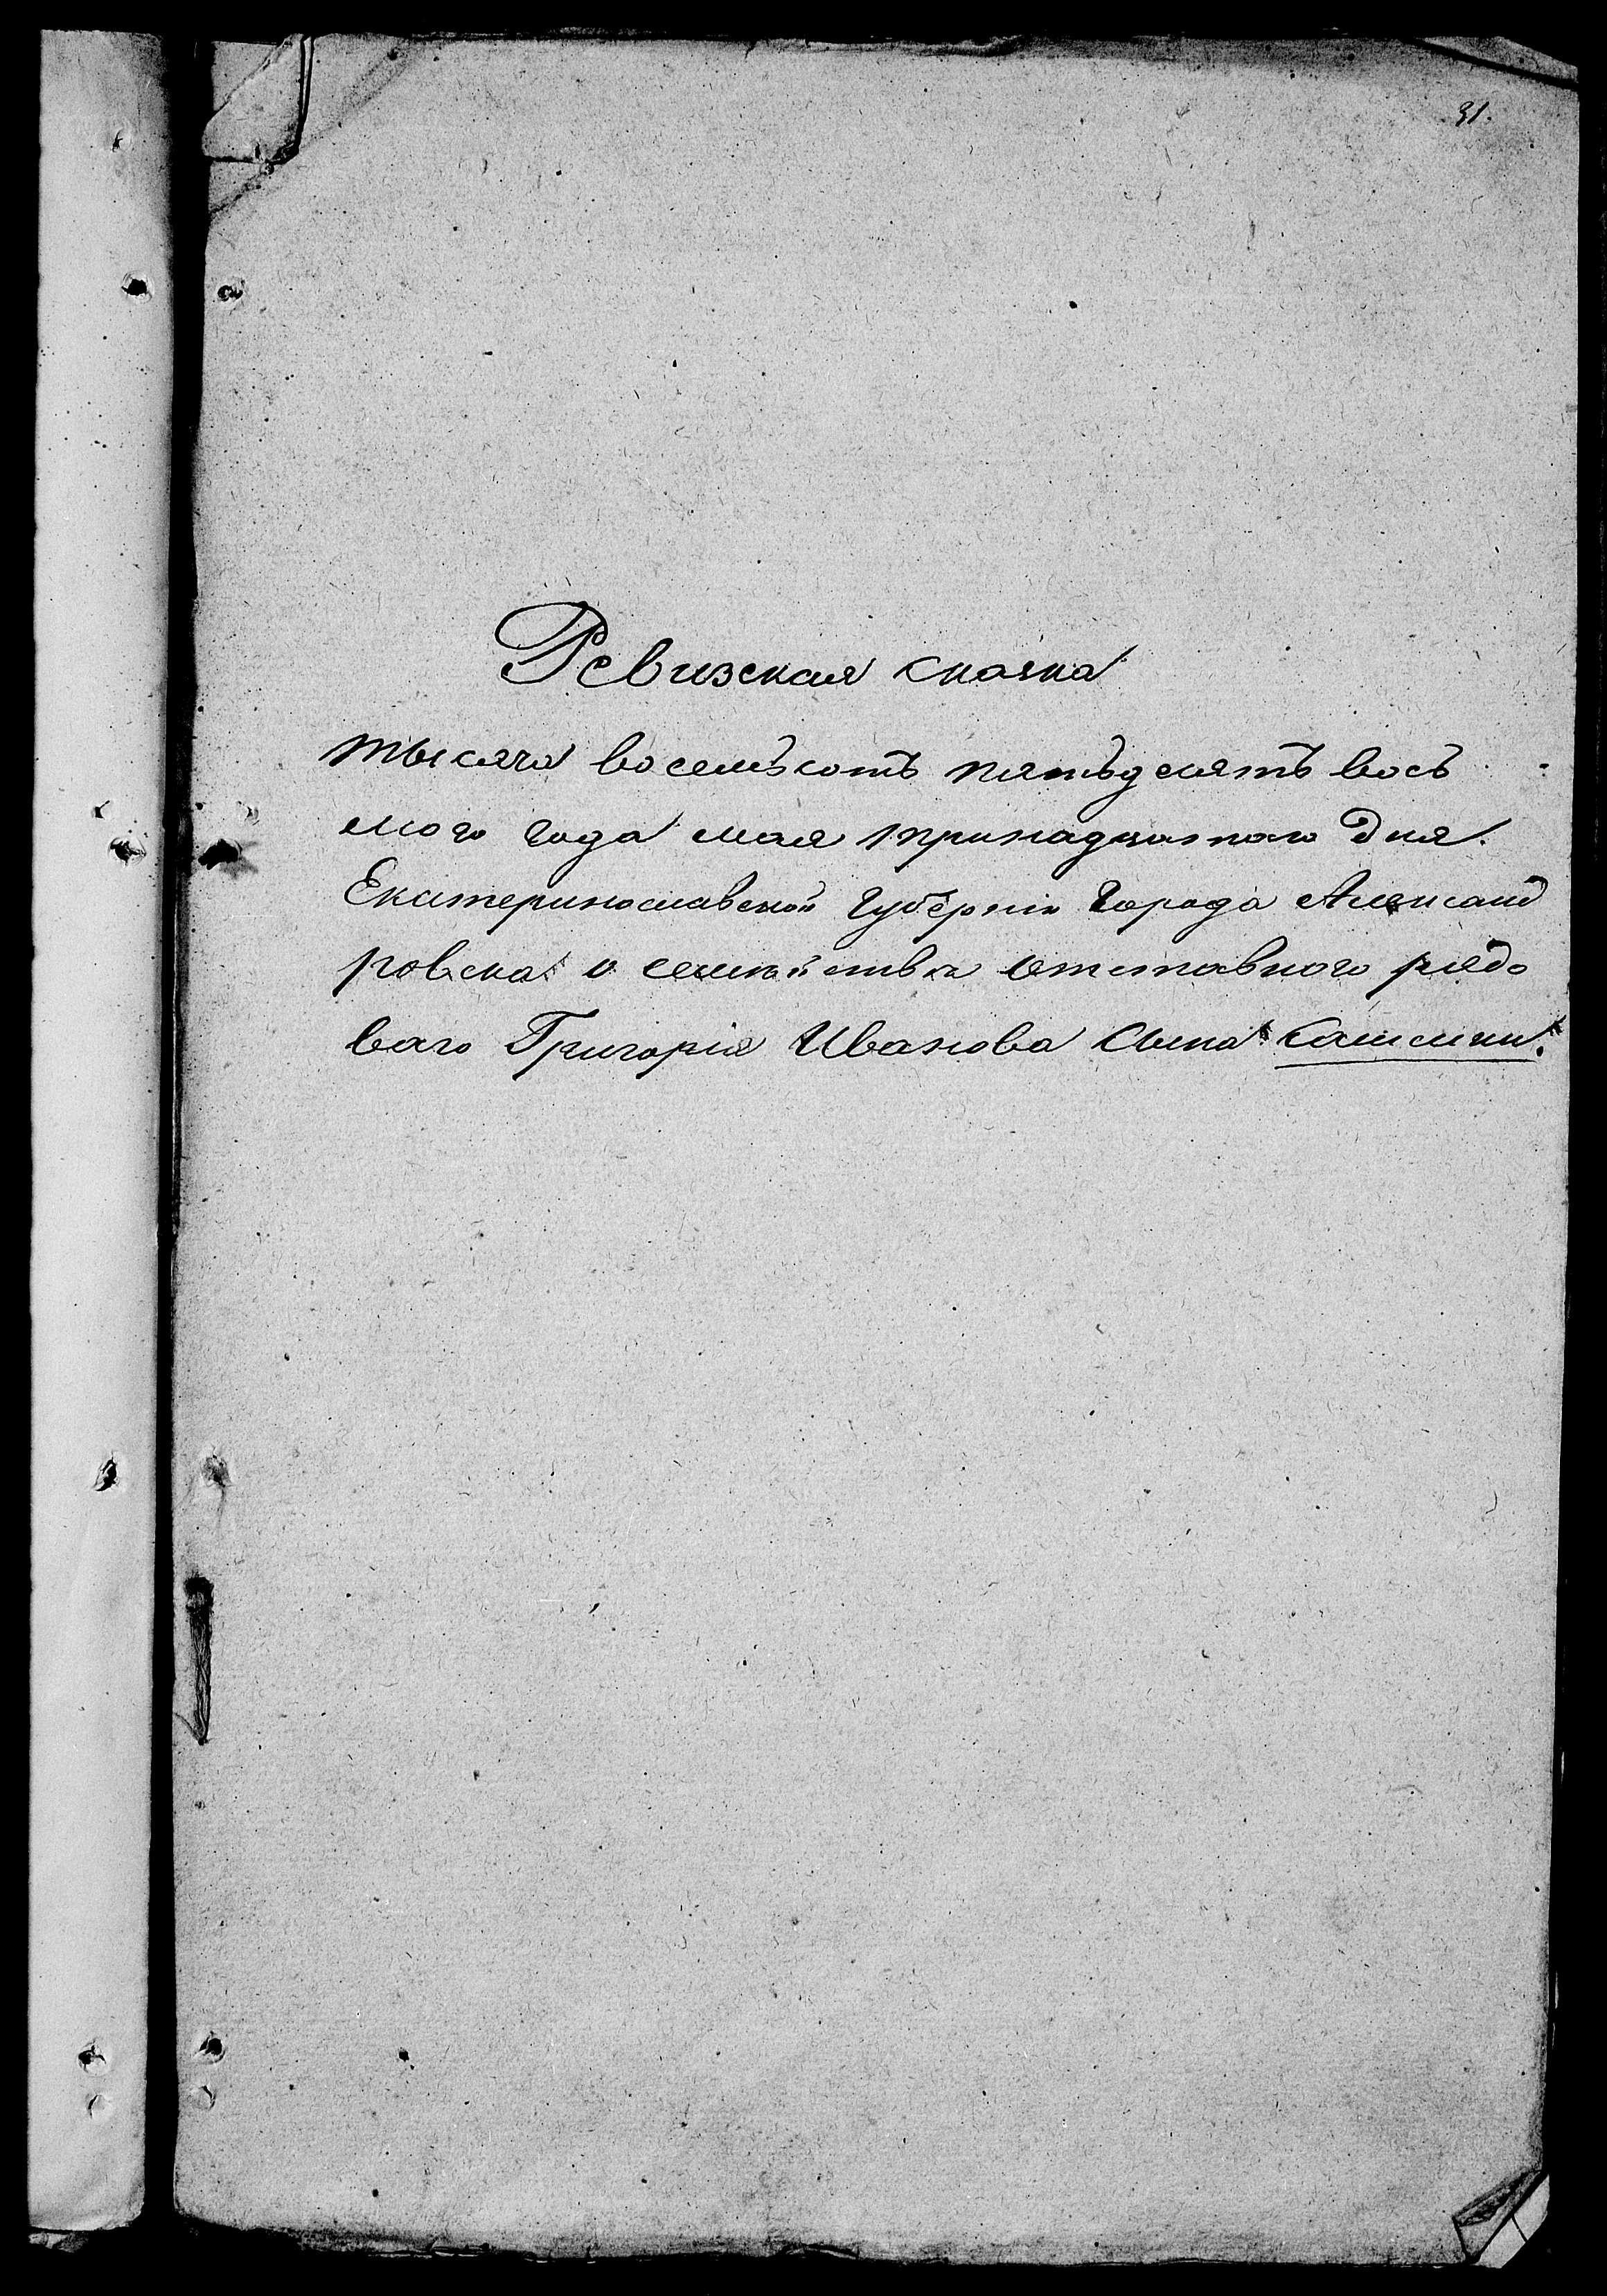 31.
Ревизская сказка
тысяча восемьсотъ пятьдесятъ вось
мого года мая тринадцатого дня.
Екатеринославской губерніи города Александ
ровска о семействѣ отставного рядо
ваго Григорія Иванова сына